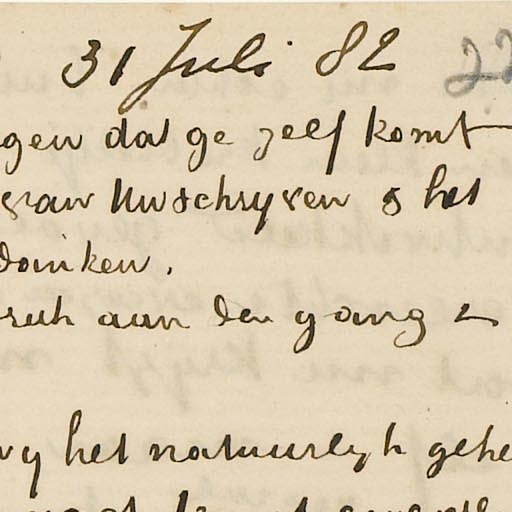 31 Juli 82 22
gen dat ge zelf komt
Uw schryven & het
danken.
druk aan den gang &
wy het natuurlyk gehe